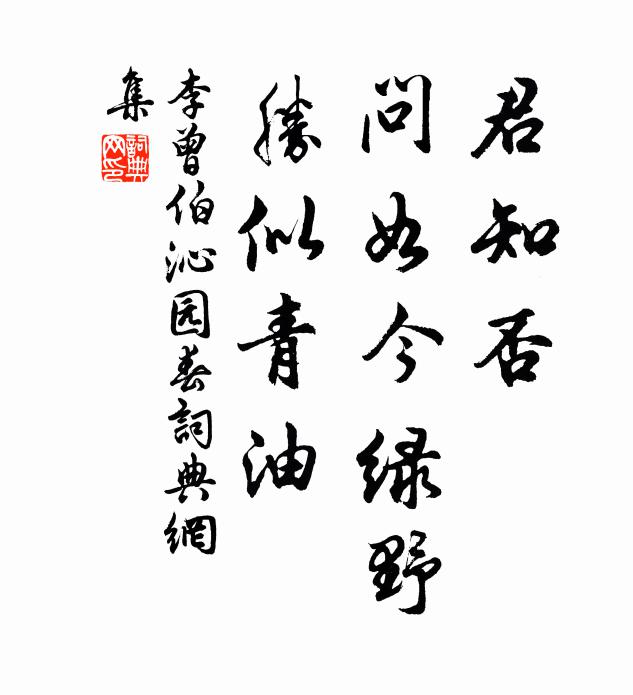 君知否
问如今绿野
勝似青油
李曾伯沁园春詞典網
集
詞典网印